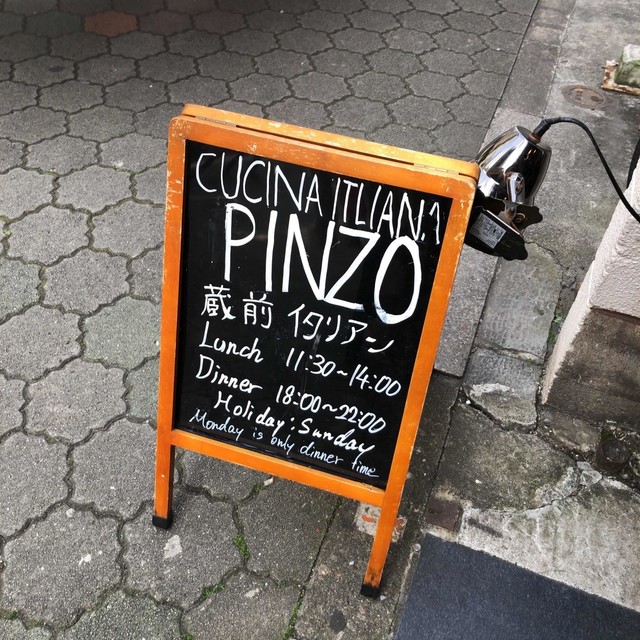 CUCINA ITLIANA
PINZO
蔵前 イタリアン
Lunch 11:30~14:00
Dinner 18:00~22:00
Holiday: Sunday
Monday is only dinner time